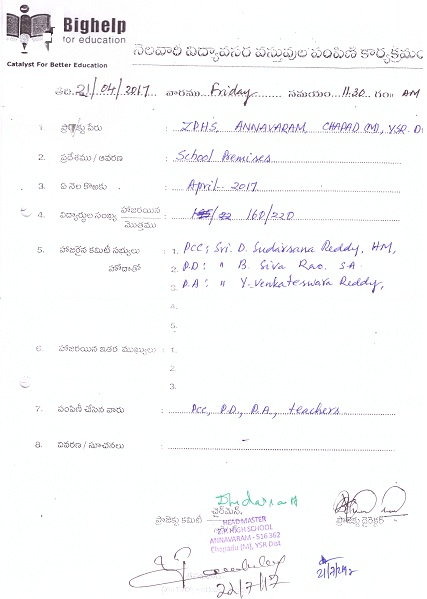 Bighelp
for education
Catalyst For Better Education
నెలవారీ విద్యావసర వస్తువుల పంపిణీ కార్యక్రమం
తేది. 21/04/2017 వారము Friday సమయం 11.30 గం॥ AM
1. ప్రాజెక్టు పేరు : ZPHS, ANNAVARAM, CHAPAD (M), YSR D
2. ప్రదేశము / ఆవరణ : School Premises
3. ఏ నెల కొఱకు : April 2017
4. విద్యార్థుల సంఖ్య హాజరయిన / మొత్తము : 160/220
5. హాజరైన కమిటీ సభ్యులు హోదాతో : 1. PCC; Sri. D. Sudarsana Reddy, HM,
2. P.D: " B. Siva Rao, S.A
3. P.A: " Y. Venkateswara Reddy,
4.
5.
6. హాజరయిన ఇతర ముఖ్యులు : 1.
2.
3.
7. పంపిణీ చేసిన వారు : PCC, P.D., P.A., teachers
8. వివరణ / సూచనలు : -
ప్రాజెక్టు కమిటీ ఛైర్మెన్, ప్రాజెక్టు డైరెక్టర్
HEAD MASTER
Z.P. HIGH SCHOOL
ANNAVARAM - 516 362
Chapadu (M), YSR Dist
22/7/17